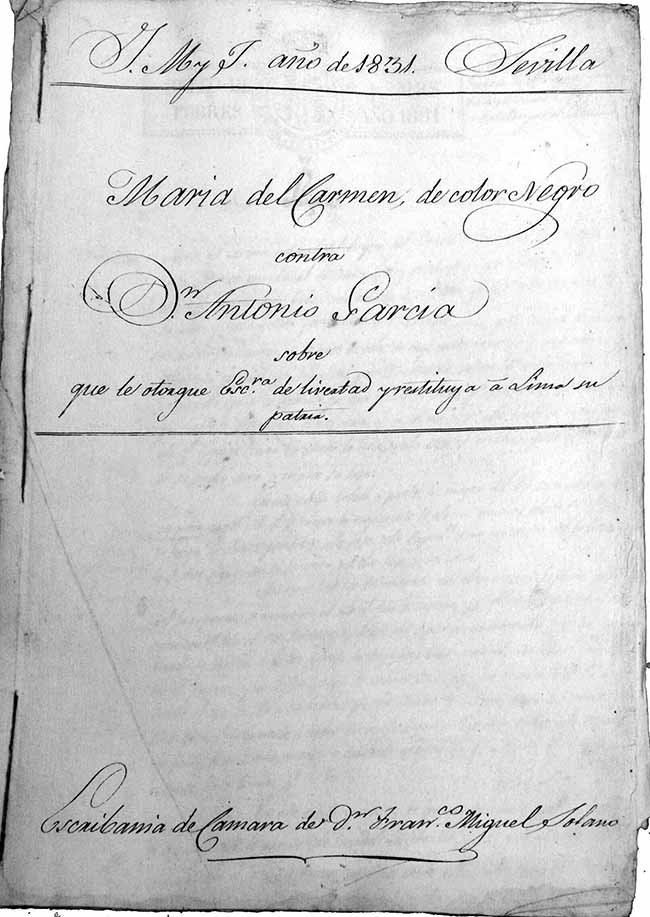 J. M y J. año de 1831. Sevilla
Maria del Carmen, de color Negro
contra
D.n Antonio Garcia
sobre
que le otorgue Esc.ra de livertad y restituya á Lima su
patria.
Escribania de Camara de D.n Fran.co Miguel Solano